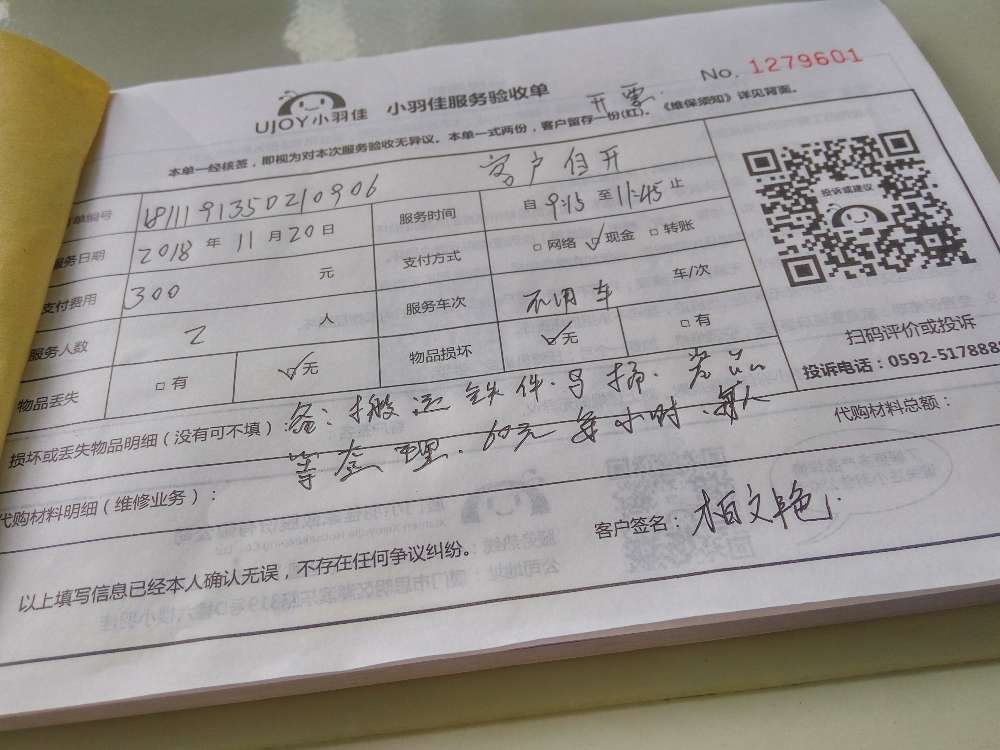 No. 1279601
UJOY小羽佳 小羽佳服务验收单
开票
本单一经核签，即视为对本次服务验收无异议。本单一式两份，客户留存一份(红)。《维保须知》详见背面。
客户自开
单编号 1811191350210906 服务时间 自 9:15 至 11:45 止
服务日期 2018 年 11 月 20 日 支付方式 □ 网络 ☑ 现金 □ 转账
支付费用 300 元 服务车次 不用车 车/次
服务人数 2 人 物品损坏 ☑ 无 □ 有
物品丢失 □ 有 ☑ 无
投诉或建议
扫码评价或投诉
投诉电话：0592-5178888
损坏或丢失物品明细（没有可不填）: 备：搬运铁件
等 理. 60元每小时
代购材料总额：
代购材料明细（维修业务）：
以上填写信息已经本人确认无误，不存在任何争议纠纷。
客户签名：柏文艳